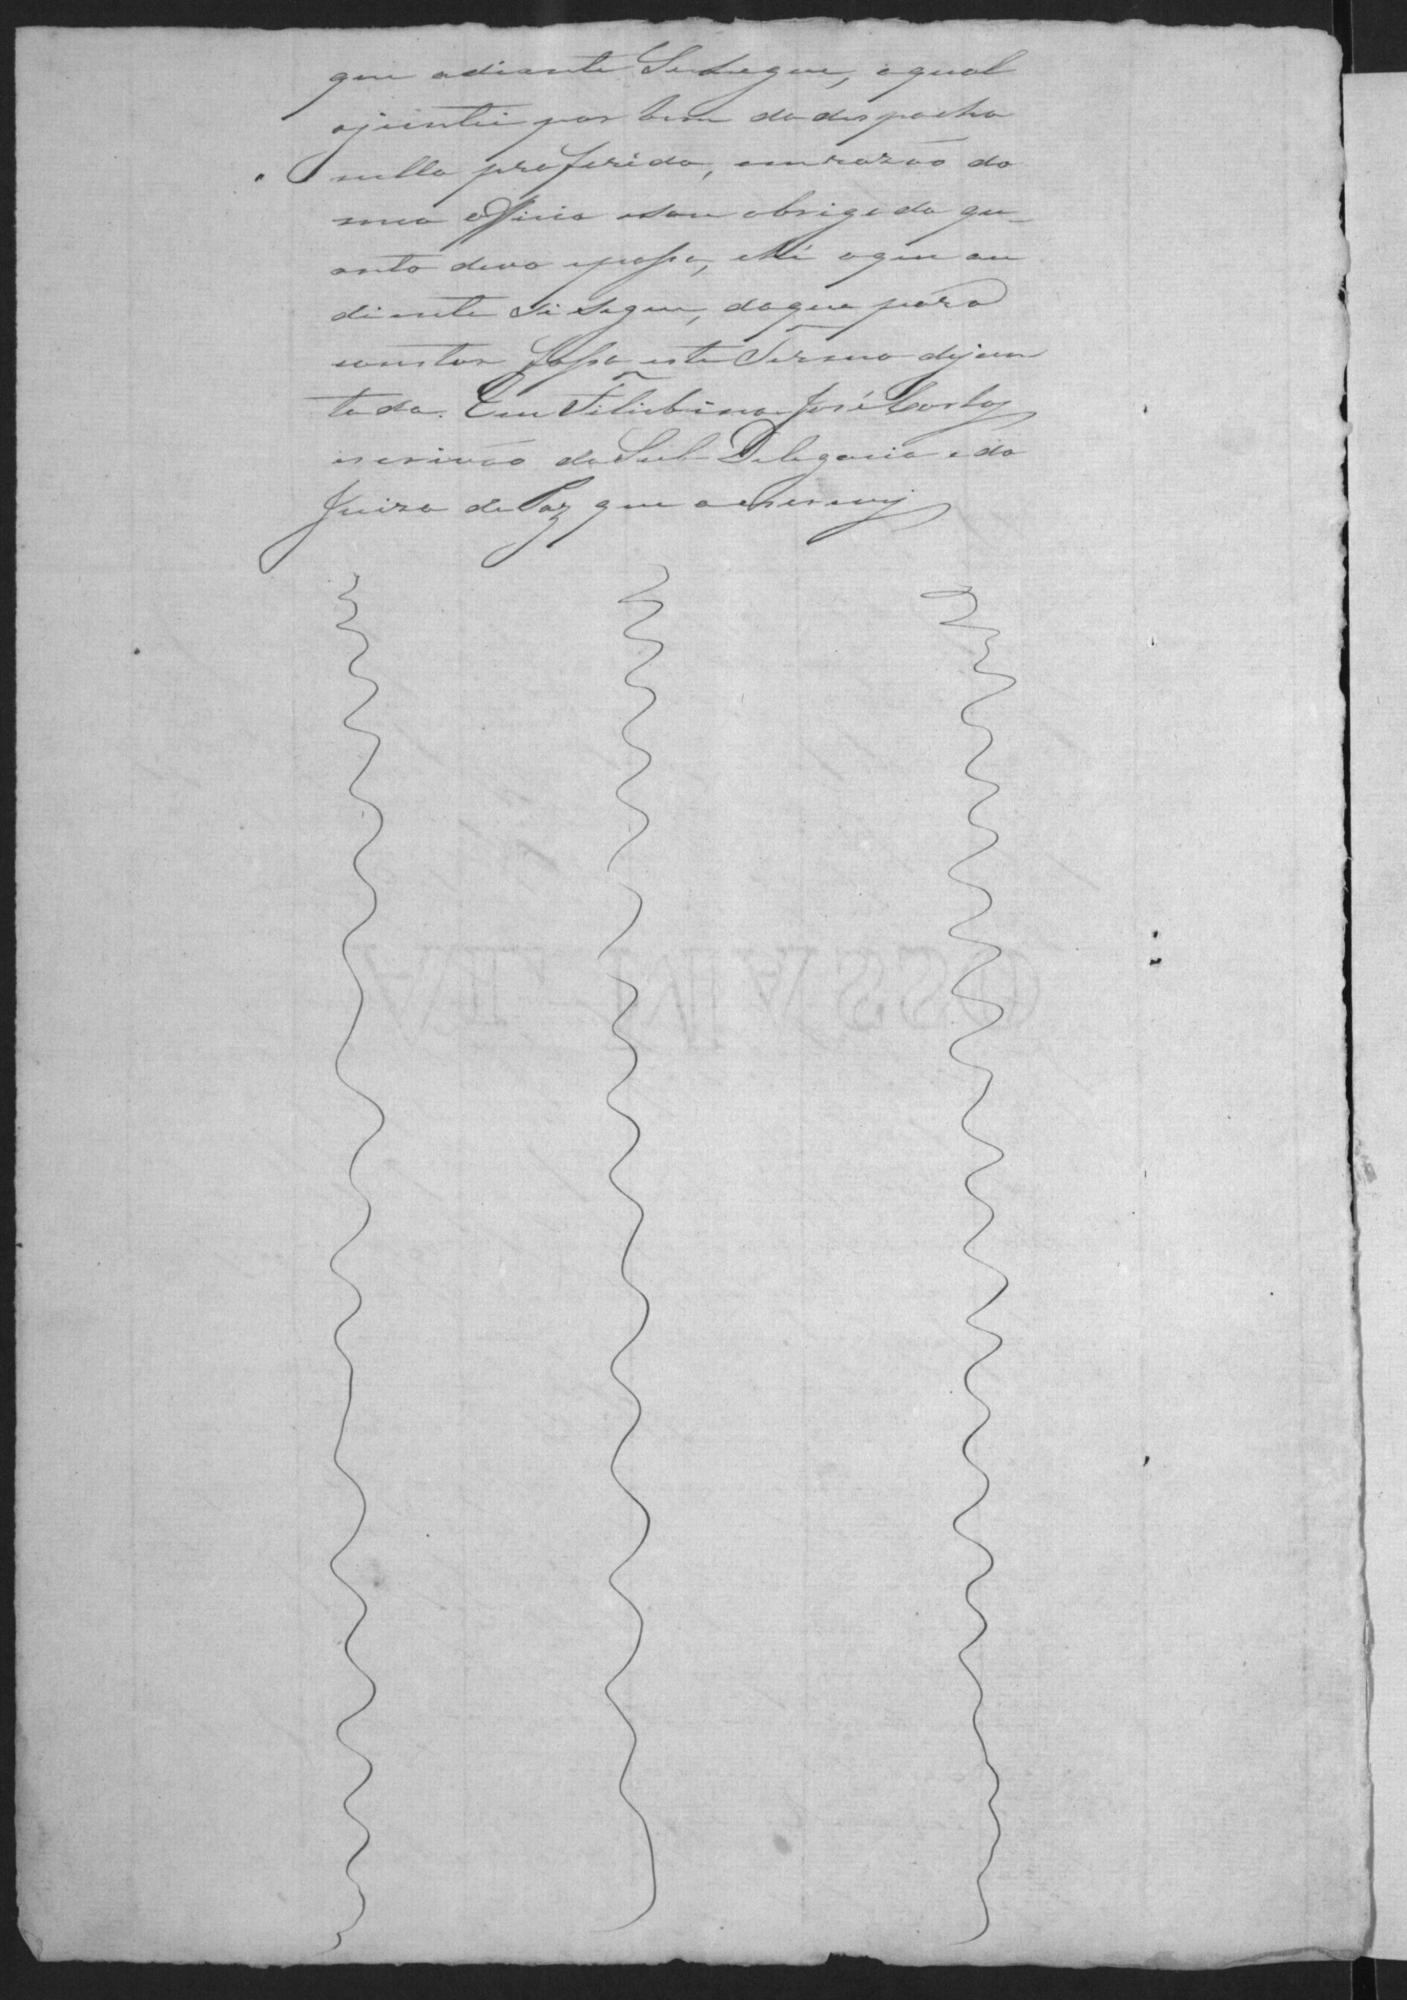 que adiante Sesegue, oqual
ajuntei por bem do despacho
nella proferido, em razão do
meu officio estou obrigado qu-
anto devo eposso, ehé oque au
diente si segue, doque para
constar fasso este Termo dejun
tada. Eu Filisbino José Cortes
escrivão da Sub Delegacia e do
Juizo de Paz que o escrevy
AL MASSO